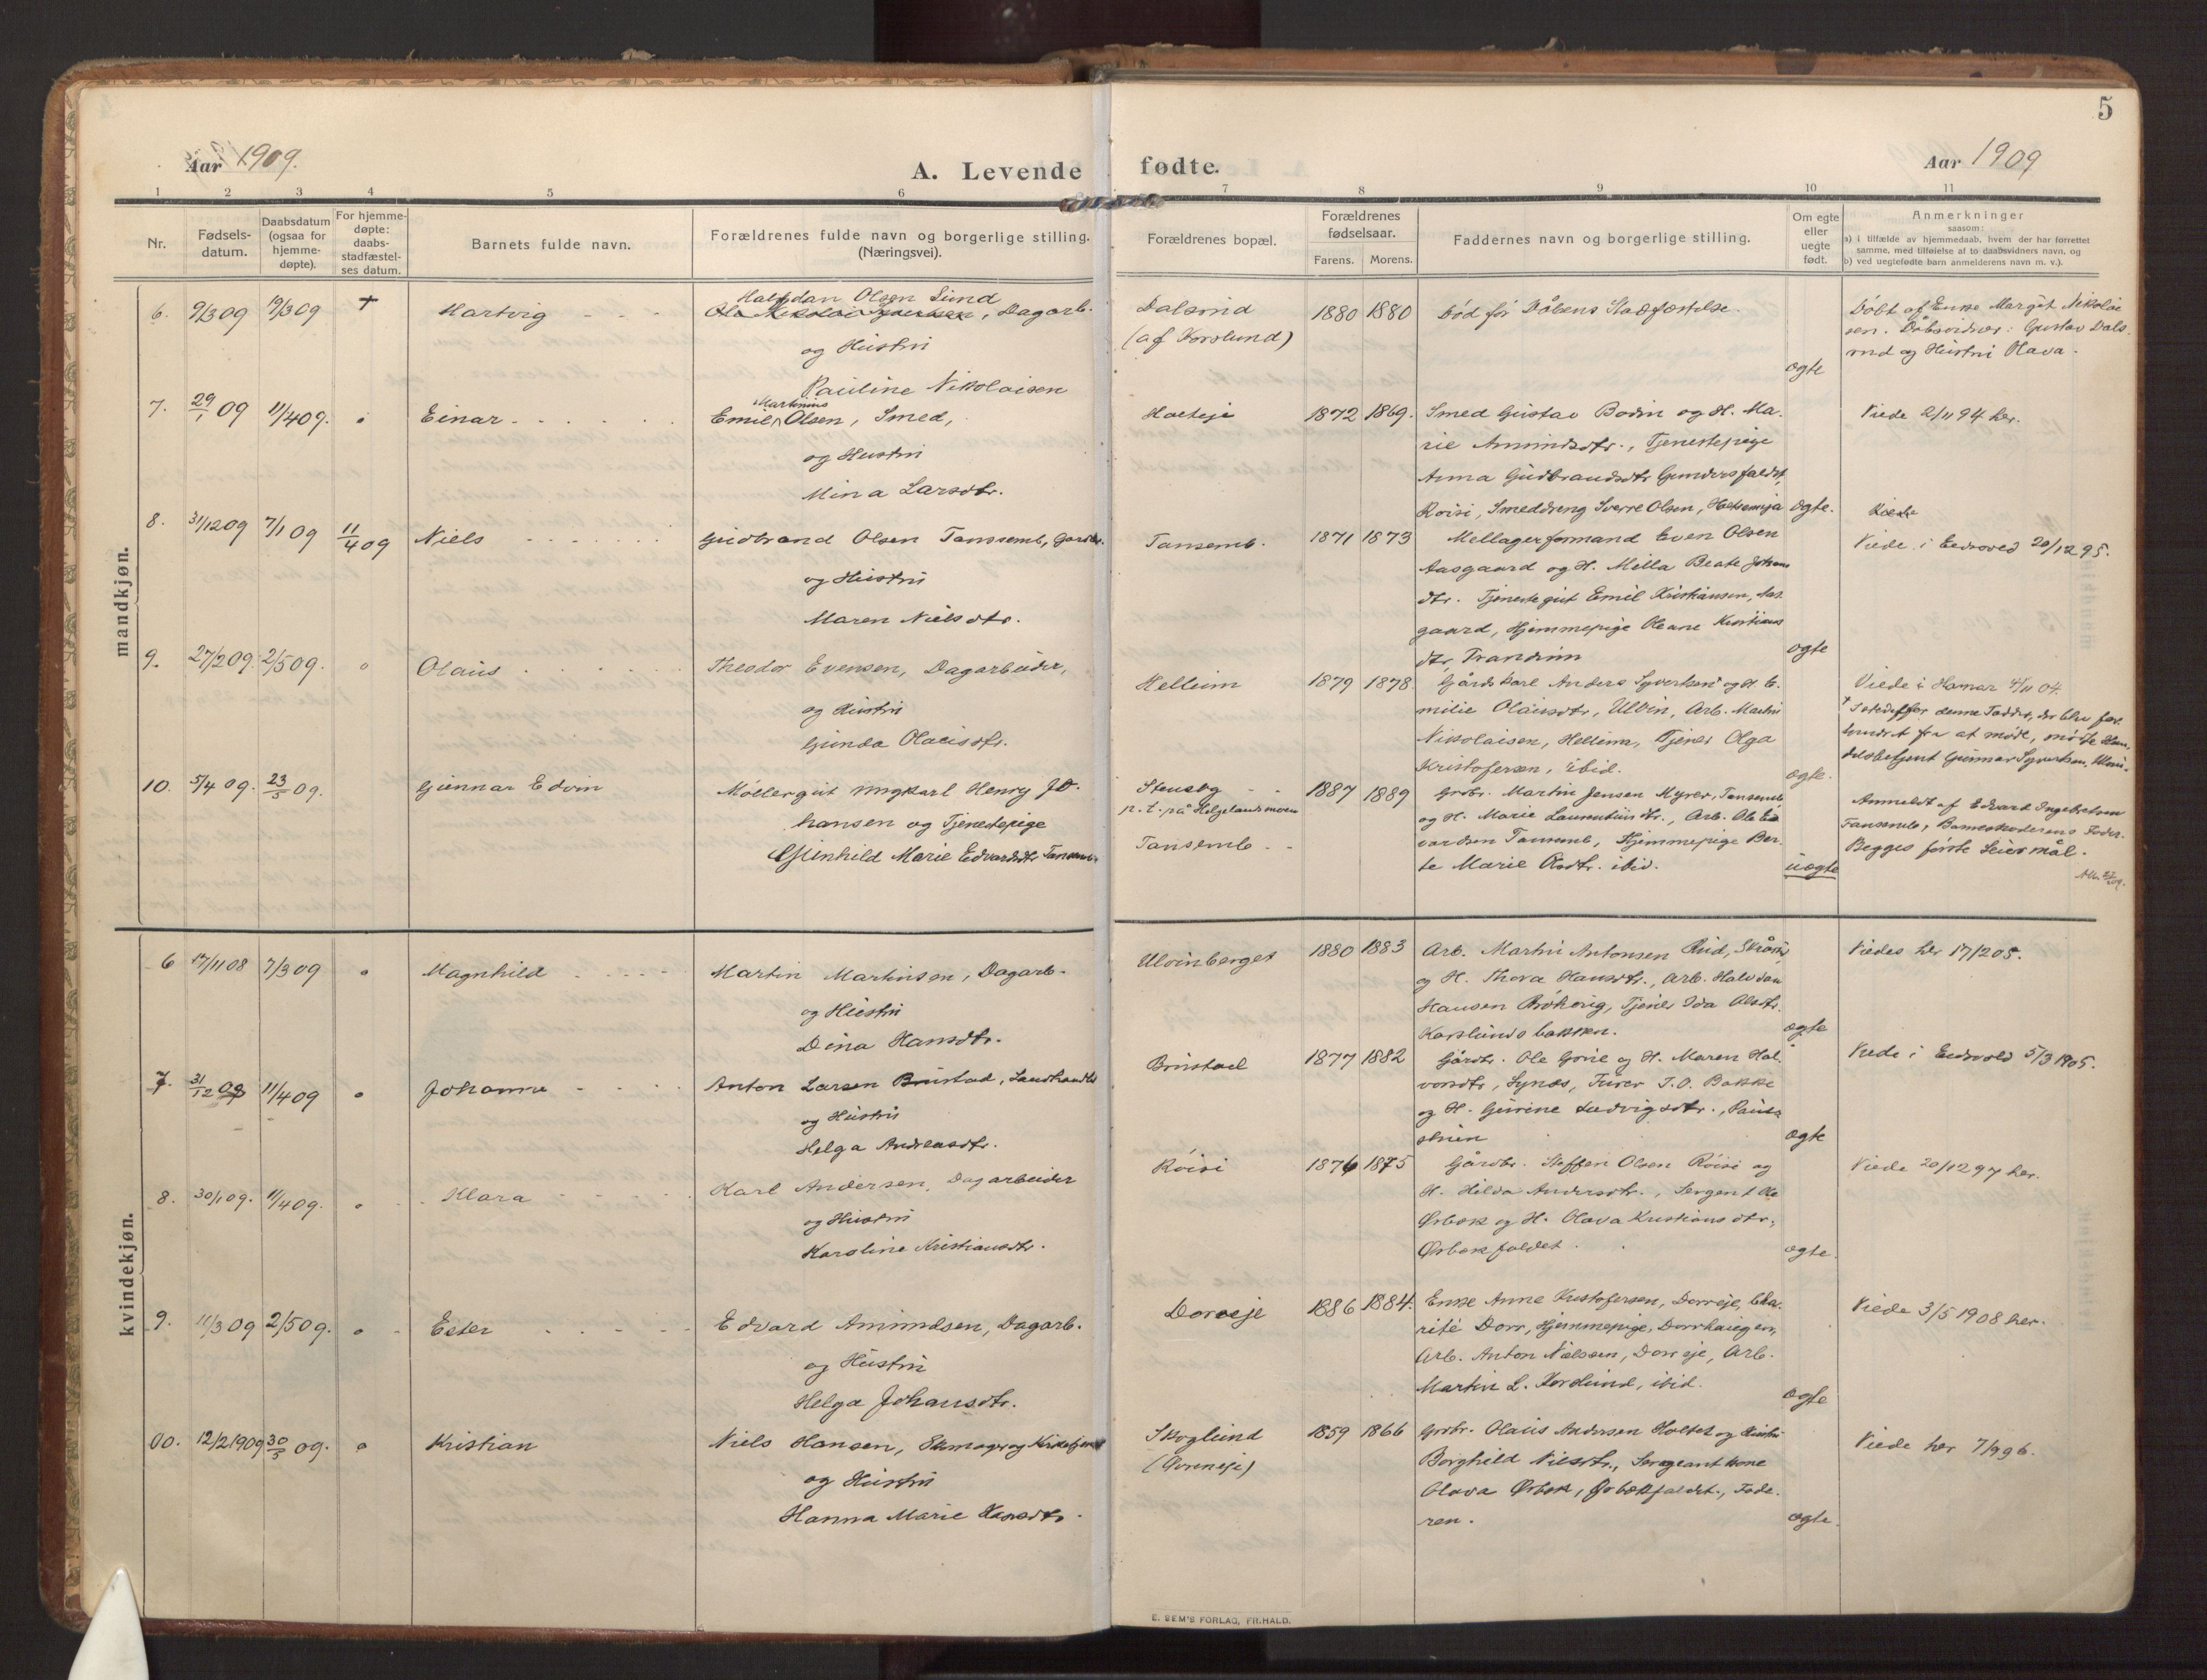 5
Aar 1909.
A. Levende fødte.
Aar 1909
1 2 3 4 5 6 7 8 9 10 11
Nr.
Fødsels-
datum.
Daabsdatum
(ogsaa for
hjemme-
døpte).
For hjemme-
døpte:
daabs-
stadfæstel-
ses datum.
Barnets fulde navn.
Forældrenes fulde navn og borgerlige stilling.
(Næringsvei).
Forældrenes bopæl.
Forældrenes
fødselsaar.
Farens. Morens.
Faddernes navn og borgerlige stilling.
Om egte
eller
uegte
født.
Anmerkninger
saasom:
a) i tilfælde av hjemmedaab, hvem der har forrettet
samme, med tilføielse af to daabsvidners navn, og
b) ved uegtefødte barn anmelderens navn m. v.).
mandkjøn.
6. 9/3 09 19/3 09 + Hartvig
Halfdan Olsen Lund
, Dagarb.
og Hustru
Pauline Nikolaisen
Dalsrud
(af Korslund)
1880 1880
Død før Dåbens Stadfæstelse.
ægte
Døbt af Enke Margit Nikolai
sen. Dåbsvidner: Gustav Dals
rud og Hustru Olava.
7. 29/1 09 11/4 09. Einar
Martinius
Emil Olsen, Smed,
og Hustru
Mina Larsdtr.
1872 1869.
Smed Gustav Bodin og H. Ma-
rie Amundsdtr., Tjenestepige
Anna Gudbrandsdtr
Røisi, Smeddreng Sverre Olsen,
ægte.
Viede 2/11 94 her.
8. 31/12 09 7/1 09 11/4 09 Niels
Gudbrand Olsen Tansemb,
og Hustru
Maren Nielsdtr.
Tansemb.
1871 1873
Even Olsen
Aasgaard og H. Milla Beate Johans
dtr. Tjenestegut Emil Kristiansen, Aas
gaard, Hjemmepige Oleane Kristians
dtr, Trandum
ægte
Viede i Eidsvold 20/12 95.
9. 27/2 09. 2/5 09. Olaus
Theodor Evensen, Dagarbeider,
og Hustru
Gunda Olausdtr.
Hellum
1879 1878.
Gårdskarl Anders Syvertsen og H. E-
milie Olausdtr, Ulvin, Arb. Martin
Nikolaisen, Hellum, Tjener Olga
Kristofersen, ibid.
ægte.
Viede i Hamar 4/11 04.
Istedetfor denne Fadder, der blev for
hindret fra at møde, mødte Han-
delsbetjent Gunnar Syvertsen,
10. 5/4 09. 23/5 09. Gunnar Edvin
Møllergut ungkarl Henry Jo-
hansen og Tjenestepige
Gunhild Marie Edvardsdtr Tansemb
Stensby
p. t. på Helgelandsmoen
Tansemb
1887 1889
Grbr. Martin Jensen Myrer, Tansemb
og H. Marie Laurentiusdtr., Arb. Ole Ed
vardsen Tansemb, Hjemmepige Ber-
te Marie Olsdtr. ibid.
uægte
Anmeldt af Edvard Ingebretsen
Tansemb, Barnemoderens Fader.
Begges første Leiermål.
kvindekjøn.
6 17/11 08 7/3 09 Magnhild
Martin Martinsen, Dagarb.
og Hustru
Dina Hansdtr.
Ulvinberget
1880 1883
Arb. Martin Antonsen Rud,
og H. Thora Hansdtr., Arb. Halvdan
Hansen Tjener Ida Olsdtr.
Korslundsbakken.
ægte
Viedes her 17/2 05.
7. 31/12 08 11/4 09 Johanne
Anton Larsen Brustad, Landhandler
og Hustru
Helga Andreasdtr.
Brustad
1877 1882
Gårdbr. Ole Gorie og H. Maren Hal-
vorsdtr, Synæs, Furer J.O. Bakke
og H. Gurine Ludvigsdtr.,
ægte
Viede i Eidsvold 5/3 1905.
8. 30/1 09. 11/4 09. Klara
Karl Andersen, Dagarbeider
og Hustru
Karoline Kristiansdtr.
Røisi
1876 1875
Gårdbr. Steffen Olsen Røisi og
H. Hilda Andersdtr., Sergent Ole
Ørbæk og H. Olava Kristiansdtr,
Ørbækfaldet.
ægte.
Viede 20/12 97 her.
9. 11/3 09 2/5 09. Ester
Edvard Amundsen, Dagarb.
og Hustru
Helga Johansdtr.
Dorreje
1886 1884.
Enke Anne Kristofersen, Dorreje,
Dorr, Hjemmepige, Dorrhaugen,
Arb. Anton Nielsen, Dorreje, Arb.
Martin L. Korslund, ibid.
ægte
Viede 3/5 1908 her.
10. 12/2 1909 30/5 09. Kristian
Niels Hansen, Skomager og Kirketjener
og Hustru
Hanna Marie Hansdtr.
Skoglund
1859 1866
Grbr. Olaus Andersen Holtet og Hustru
Borghild Nilsdtr., Sergeantkone
Olava Ørbæk, Ørbækfaldet, Fade-
ren.
ægte.
Viede her 7/9 96.
E. SEM'S FORLAG, FR.HALD.